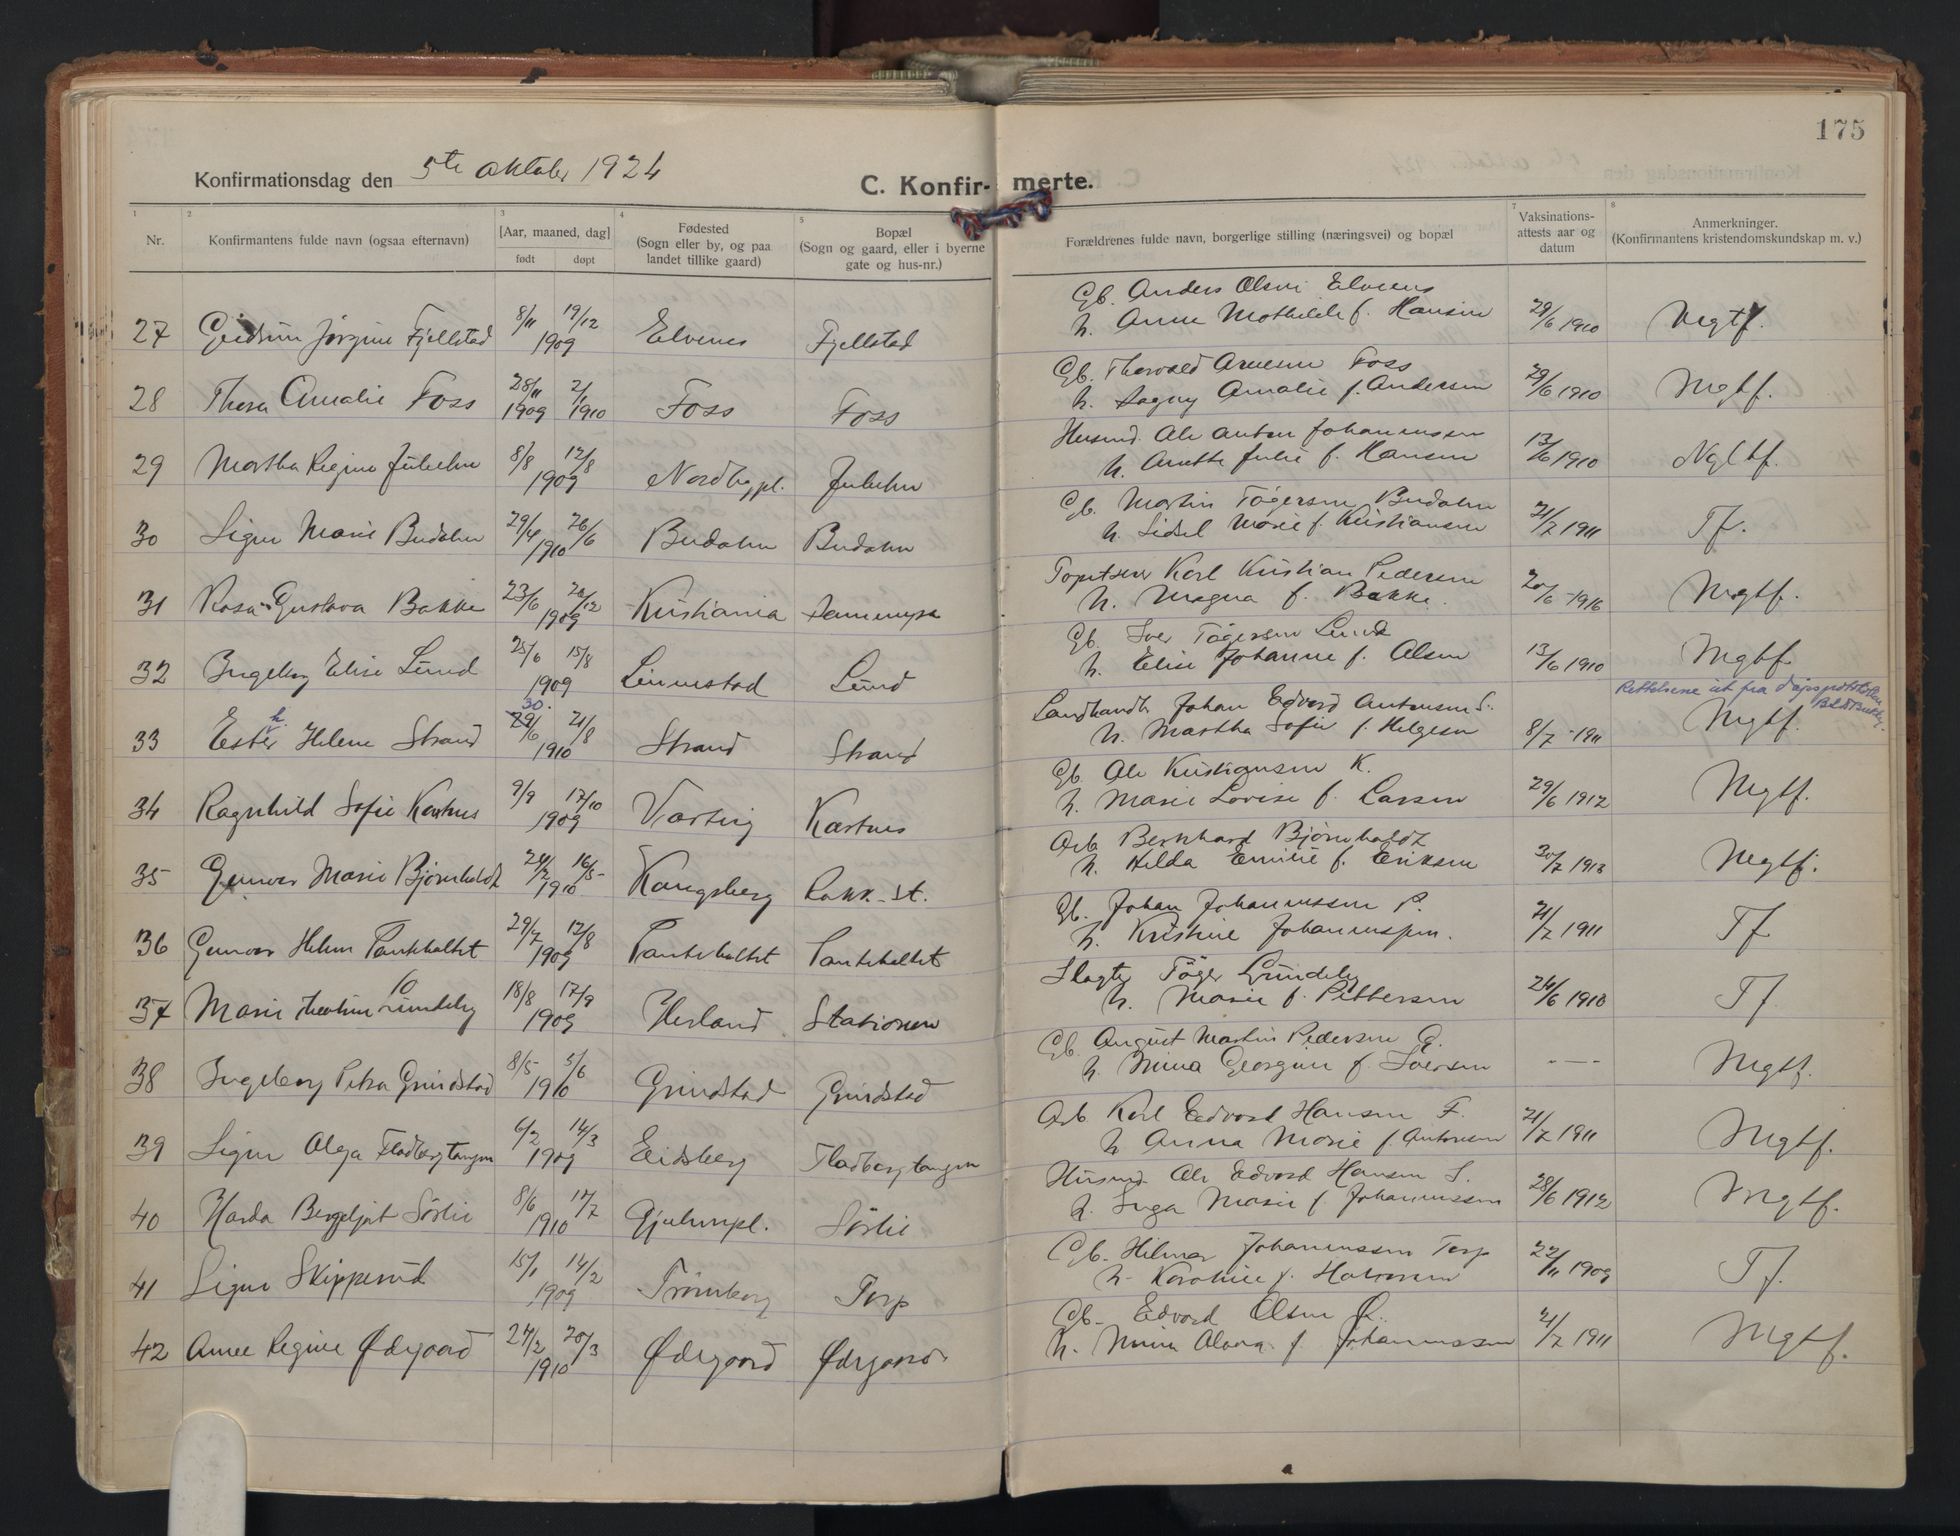 175
Konfirmationsdag den 5te oktober 1924
C. Konfir- merte.
1 2 3 4 5 7 8
Nr.
Konfirmantens fulde navn (ogsaa efternavn)
[Aar, maaned, dag]
født døpt
Fødested
(Sogn eller by, og paa
landet tillike gaard)
Bopæl
(Sogn og gaard, eller i byerne
gate og hus-nr.)
Forældrenes fulde navn, borgerlige stilling (næringsvei) og bopæl
Vaksinations-
attests aar og
datum
Anmerkninger.
(Konfirmantens kristendomskundskap m. v.)
Gb. Anders Olsen Elvenes
27 Gudrun Jørgine Fjellstad 8/11 19/12 1909 Elvenes Fjellstad h. Anne Mathilde f. Hansen 29/6 1910 Mgtf.
Gb. Thorvald Arnesen Foss
28 Thora Amalie Foss 28/11 1909 2/1 1910 Foss Foss h. Dagny Amalie f. Andersen 29/6 1910 Mgtf.
Husmd. Ole Anton Johannessen
29 Martha Regine 8/8 12/8 1909 Nordbypl. h. Anette Julie f. Hansen 13/6 1910 Ngltf.
Gb. Martin Tøgersen Budalen
30 Signe Marie Budalen 29/4 26/6 1910 Budalen Budalen h. Sidsel Marie f. Kristiansen 21/7 1911 Tf.
Karl Kristian Pedersen
31 Rosa Gustava Bakke 23/6 26/12 1909 Kristiania h. Magna f. Bakke. 20/6 1916 Mgtf.
Gb. Iver Tøgersen Lund
32 Ingeborg Elise Lund 25/6 15/8 1909 Linnestad Lund h. Elise Johanne f. Olsen 13/6 1910 Mgtf
Rettelsene ut fra dåpsprotokollen
Landhandl. Johan Edvard Antonsen S.
33 Esther Helene Strand 30. 29/6 21/8 1910 Strand Strand h. Martha Sofie f. Helgesen 8/7 1911 Mgtf.
Gb. Ole Kristiansen K.
34 Ragnhild Sofie Kastnes 9/9 17/10 1909 Kastnes h. Marie Lovise f. Larsen 29/6 1912 Mgtf.
Arb Bernhard Bjørnholdt
35 Gunvor Marie Bjørnholdt 24/2 16/5 1910 Kongsberg Rakk. st. h. Hilda Emilie f. Eriksen 30/7 1913 Mgtf.
Gb. Johan Johannessen P.
36 Gunvor Helene 29/7 12/8 1909 h. Kristine Johannessen. 21/7 1911 Tf
Slagter Tøger Grundeby
37 Marie 18/8 17/9 1909 Herland Stationen h. Marie f. Pettersen 26/6 1910 Tf.
Gb. August Martin Pedersen G.
38 Ingeborg Petra Grindstad 8/5 5/6 1910 Grindstad Grindstad h. Mina Georgine f. Iversen - — - Mgtf.
Arb Karl Edvard Hansen F.
39 Signe Olga Fladbergtangen 6/2 14/3 1909 Eidsberg Fladbergtangen h. Anna Marie f. Antonsen 21/7 1911 Mgtf.
Husmd. Ole Edvard Hansen S.
40 Harda Bergljot Sörlie 8/6 17/7 1910 Gjulumpl. Sörlie h. Inga Marie f. Johannessen 28/6 1912 Mgtf.
Gb. Hilmar Johannessen Torp
41 Signe Skipperud 15/1 14/2 1909 Trømborg Torp h. Karoline f. Halvorsen 22/11 1909 Tf.
Gb. Edvard Olsen Ø.
42 Anne Regine Ødegaard 27/2 20/3 1910 Ødegaard Ødegaard h. Mina Alvina f. Johannessen 21/7 1911 Mgtf.